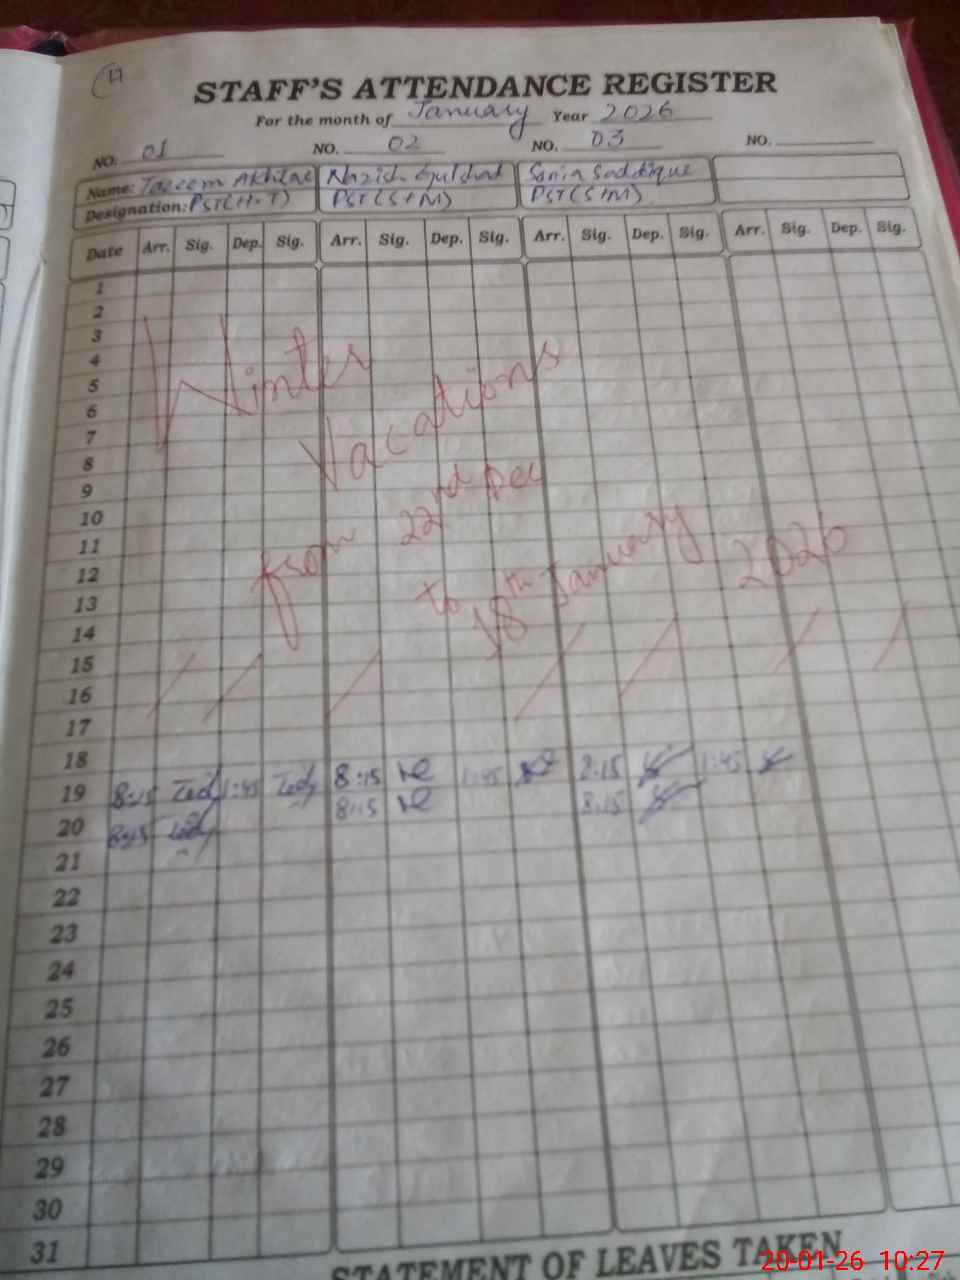 17
STAFF'S ATTENDANCE REGISTER
For the month of January Year 2026
NO. 01 NO. 02 NO. 03 NO.
Name: Akhtar Nazish Gulshad Sania Saddique
Designation: PST(H.T) PST(S+M) PST(S+M)
Date Arr. Sig. Dep. Sig. Arr. Sig. Dep. Sig. Arr. Sig. Dep. Sig. Arr. Sig. Dep. Sig.
1
2
3
4
5
6
7
8
9
10
11
12
13
14
15
16
17
18
19 8:15 1:45 8:15 1:45 8:15 1:45
20 8:15 8:15 8:15
21
22
23
24
25
26
27
28
29
30
31
Winter
Vacations
from 22nd Dec
to 18th January 2026
STATEMENT OF LEAVES TAKEN
20-01-26 10:27